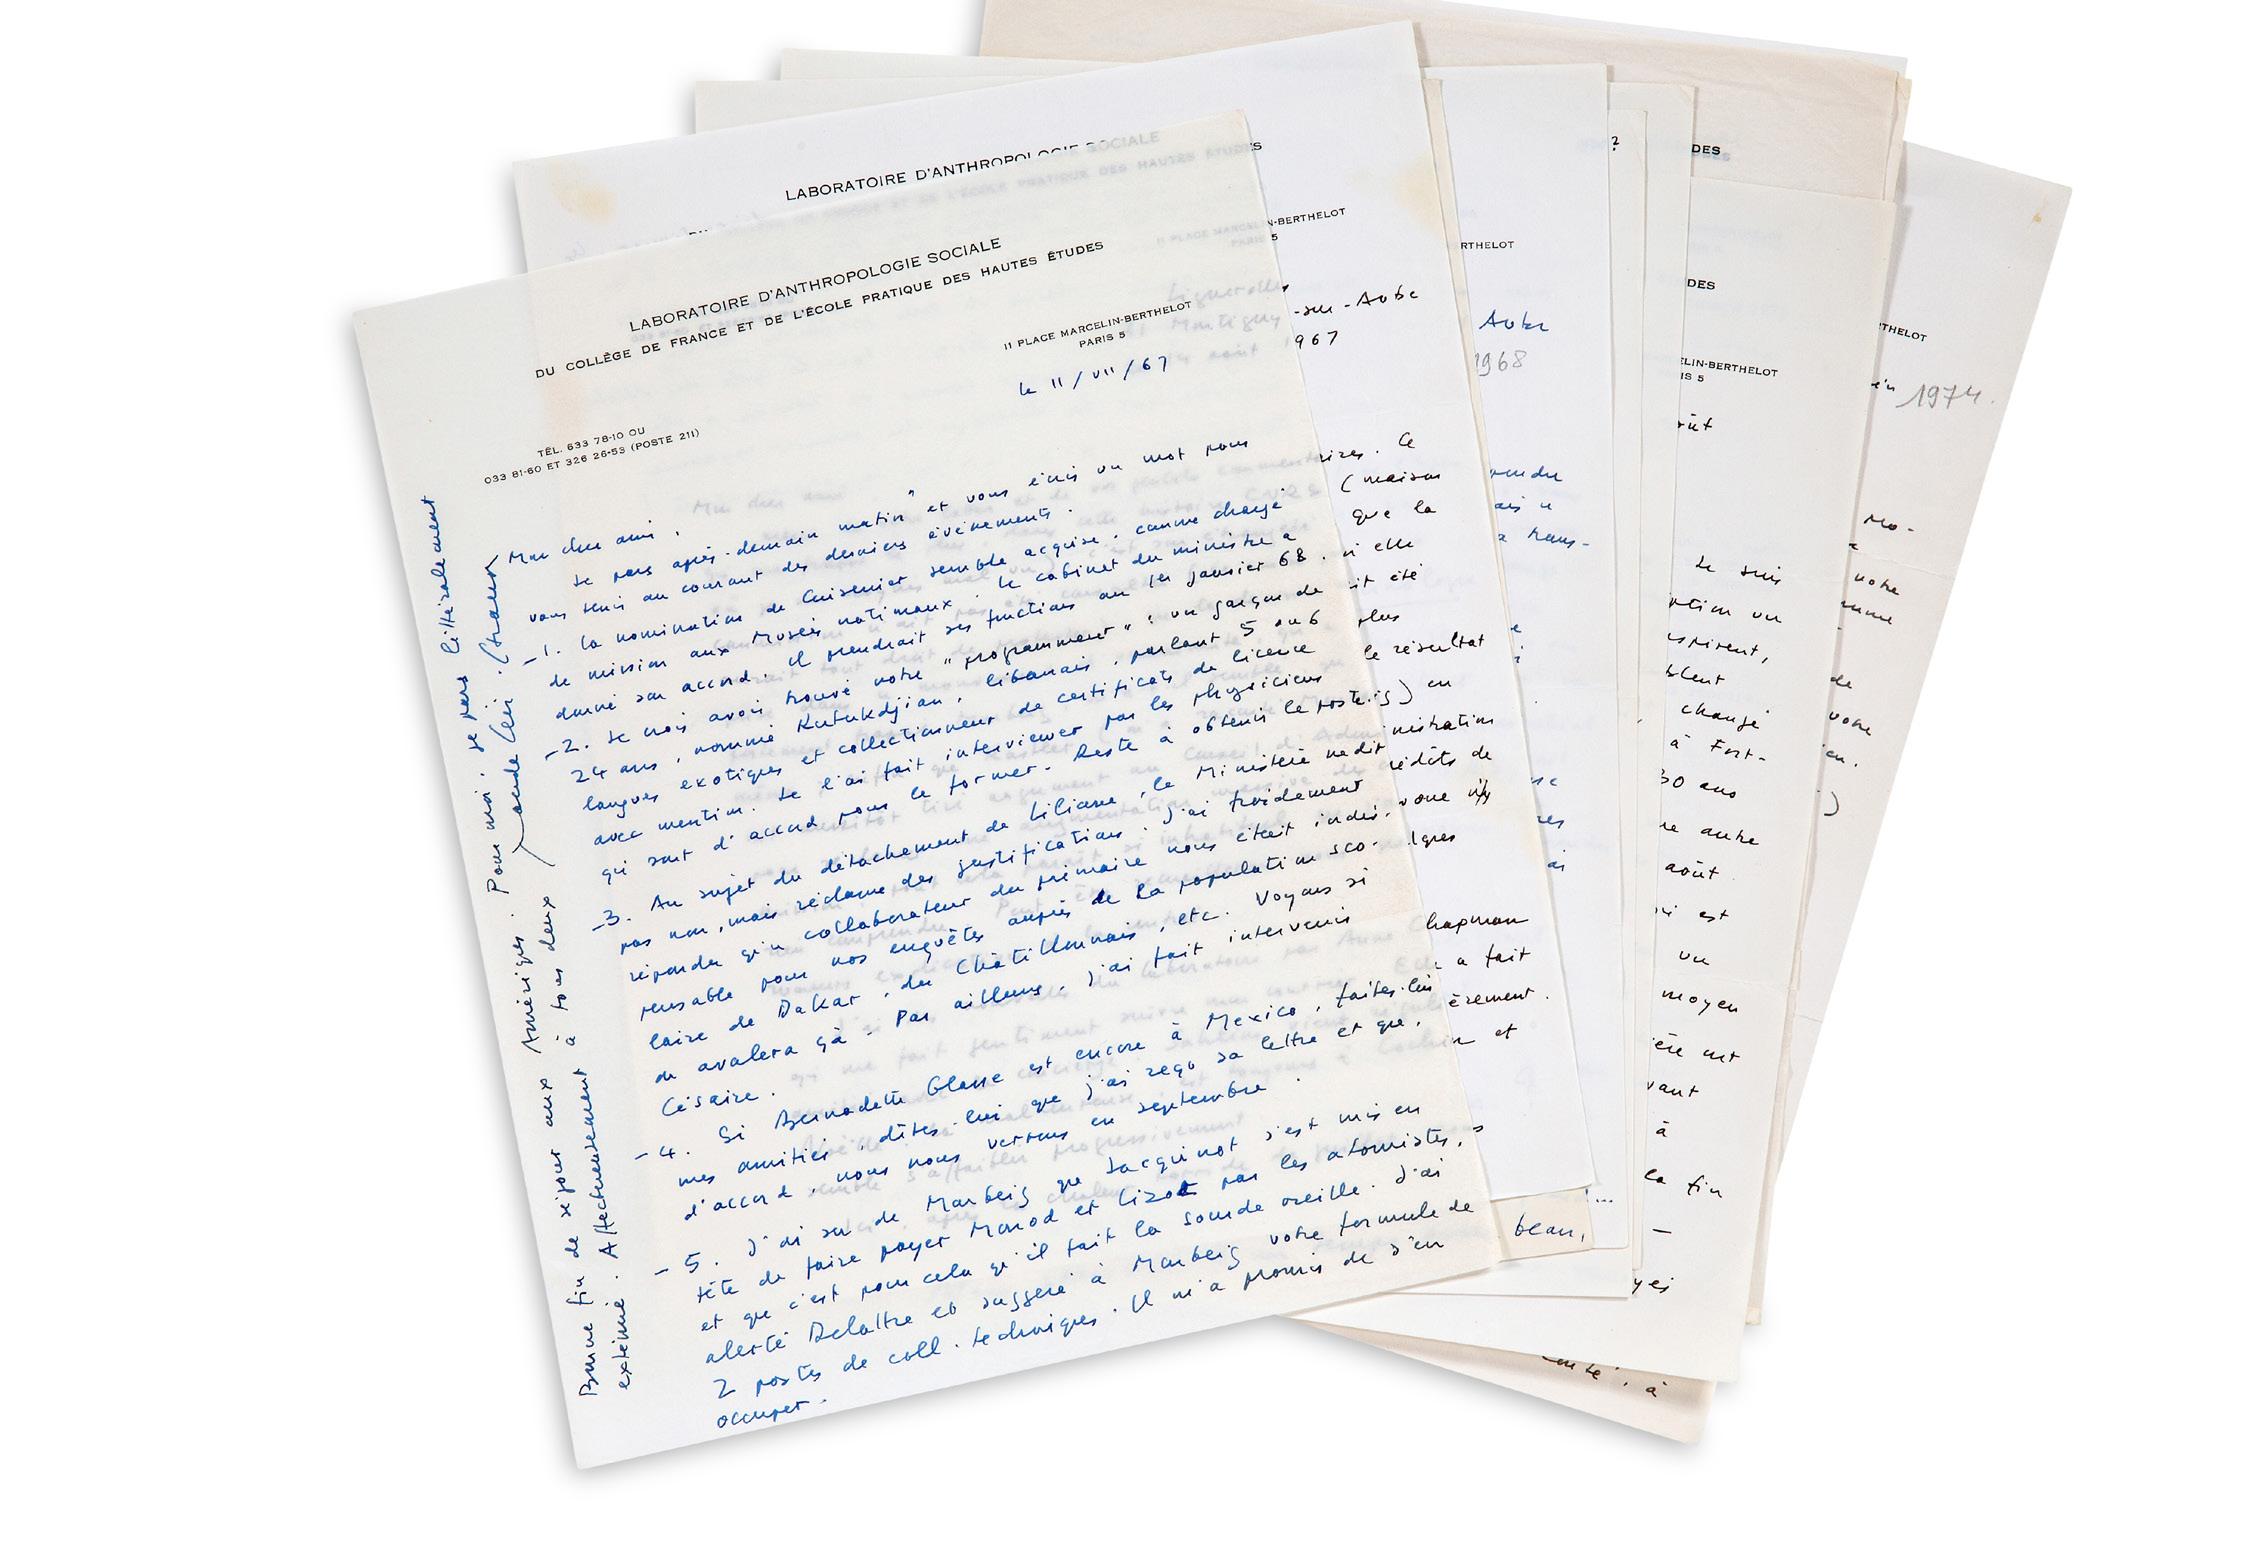 LABORATOIRE D'ANTHROPOLOGIE SOCIALE
DU COLLÈGE DE FRANCE ET DE L'ÉCOLE PRATIQUE DES HAUTES ÉTUDES
11 PLACE MARCELIN-BERTHELOT
PARIS 5
le 11/VII/67
TÉL. 633 78-10 OU
033 81-60 ET 326 26-53 (POSTE 211)
Mon cher ami,
Je pars "après-demain matin" et vous écris un mot pour
vous tenir au courant des derniers événements.
-1. La nomination de Cuisenier semble acquise, comme chargé
de mission aux Musées nationaux. Le cabinet du ministre a
donné son accord. Il prendrait ses fonctions au 1er janvier 68.
-2. Je crois avoir trouvé notre "programmeur" : un garçon de
24 ans, nommé Kutukdjian, libanais, parlant 5 ou 6
langues exotiques et collectionneur de certificats de licence
avec mention. Je l'ai fait interviewer par les physiciens
qui sont d'accord pour le former. Reste à obtenir le poste.
-3. Au sujet du détachement de Liliane, le Ministère ne dit
pas non, mais réclame des justifications. J'ai froidement
répondu qu'un collaborateur du primaire nous était indis-
pensable pour nos enquêtes auprès de la population sco-
laire de Dakar, du Châtillonnais, etc. Voyons si
on avalera çà - Par ailleurs, j'ai fait intervenir
Césaire.
-4. Si Bernadette est encore à Mexico, faites-lui
mes amitiés, dites-lui que j'ai reçu sa lettre et que,
d'accord, nous nous verrons en septembre.
-5. J'ai su de Monbeig que Jacquinot s'est mis en
tête de faire payer Monod et Lizot par les atomistes,
et que c'est pour cela qu'il fait la sourde oreille. J'ai
alerté Delattre et suggéré à Monbeig votre formule de
2 postes de coll. techniques. Il m'a promis de s'en
occuper.
Bonne fin de séjour aux Amériques. Pour moi, je pars littéralement
exténué. Affectueusement à tous deux
Claude Lévi-Strauss
LABORATOIRE D'ANTHROPOLOGIE SOCIALE
N-BERTHELOT
5
-sur-Aube
967
Ce
(maison
que la
si elle
été
plus
le résultat
) en
nistration
édits de
hapman
a fait
èrement.
et
?
RTHELOT
Aube
1968
trans-
beau,
DES
DES
ELIN-BERTHELOT
IS 5
Je suis
un
changé
à Fort-
30 ans
autre
août
est
un
moyen
ont
vant
à
la fin
THELOT
1974.
Mo-
notre
de
votre
en.
)
à